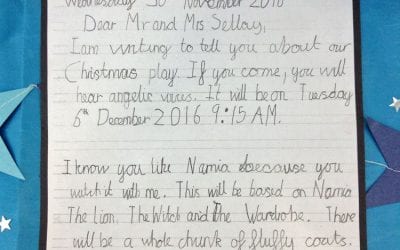 Wednesday 30th November 2016
Dear Mr and Mrs Sellay,
I am writing to tell you about our
Christmas play. If you come, you will
hear angelic voices. It will be on Tuesday
6th December 2016 9:15 AM.
I know you like Narnia because you
watch it with me. This will be based on Narnia
The Lion. The Witch and The Wardrobe. There
will be a whole chunk of fluffy coats.